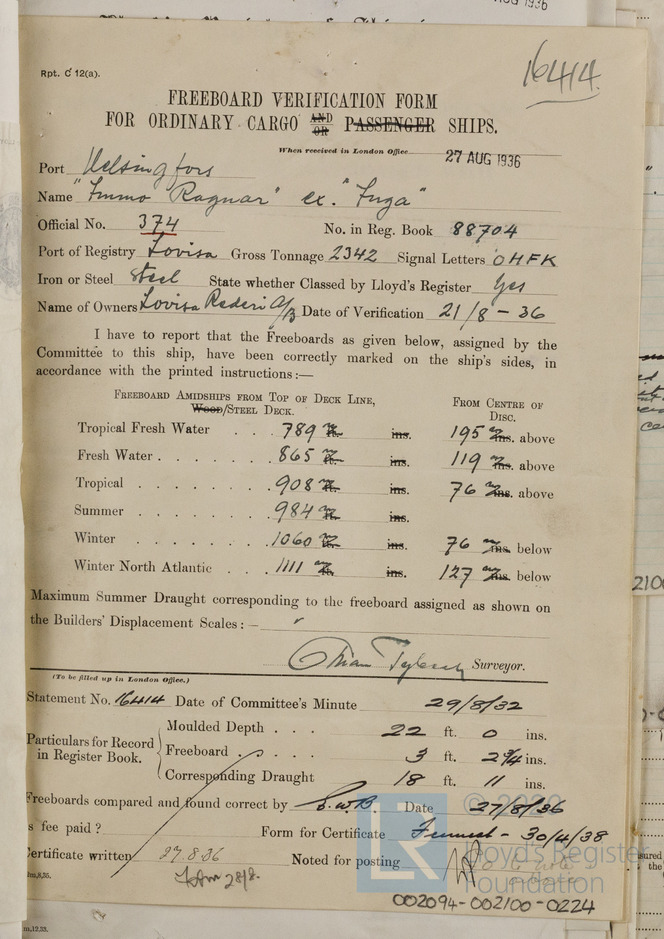 AUG 1936
16414
Rpt. C 12(a).
FREEBOARD VERIFICATION FORM
FOR ORDINARY CARGO AND OR PASSENGER SHIPS.
When received in London Office 27 AUG 1936
Port Helsingfors
Name "Immo Ragnar" ex. "Inga"
Official No. 374 No. in Reg. Book 88704
Port of Registry Lovisa Gross Tonnage 2342 Signal Letters OHFK
Iron or Steel Steel State whether Classed by Lloyd's Register Yes
Name of Owners Lovisa Rederi A/B Date of Verification 21/8-36
I have to report that the Freeboards as given below, assigned by the
Committee to this ship, have been correctly marked on the ship's sides, in
accordance with the printed instructions:—
FREEBOARD AMIDSHIPS FROM TOP OF DECK LINE, FROM CENTRE OF
Wood/STEEL DECK. DISC.
Tropical Fresh Water . . . 789 ins. 195 ins. above
Fresh Water . . . . . . . 865 ins. 119 ins. above
Tropical . . . . . . . 908 ins. 76 ins. above
Summer . . . . . . . 984 ins.
Winter . . . . . . . 1060 ins. 76 ins. below
Winter North Atlantic . . . 1111 ins. 127 ins. below
Maximum Summer Draught corresponding to the freeboard assigned as shown on
the Builders' Displacement Scales :—
Surveyor.
(To be filled up in London Office.)
Statement No. 16414 Date of Committee's Minute 29/8/32
Particulars for Record in Register Book.
Moulded Depth . . . 22 ft. 0 ins.
Freeboard . . . 3 ft. 2¾ ins.
Corresponding Draught 18 ft. 11 ins.
Freeboards compared and found correct by E.W.B. Date 27/8/36
s fee paid ? Form for Certificate - 30/4/38
ertificate written 27.8.36 Noted for posting
28/8.
© 2020
LR
Lloyd's Register
Foundation
002094-002100-0224
m.12.33.